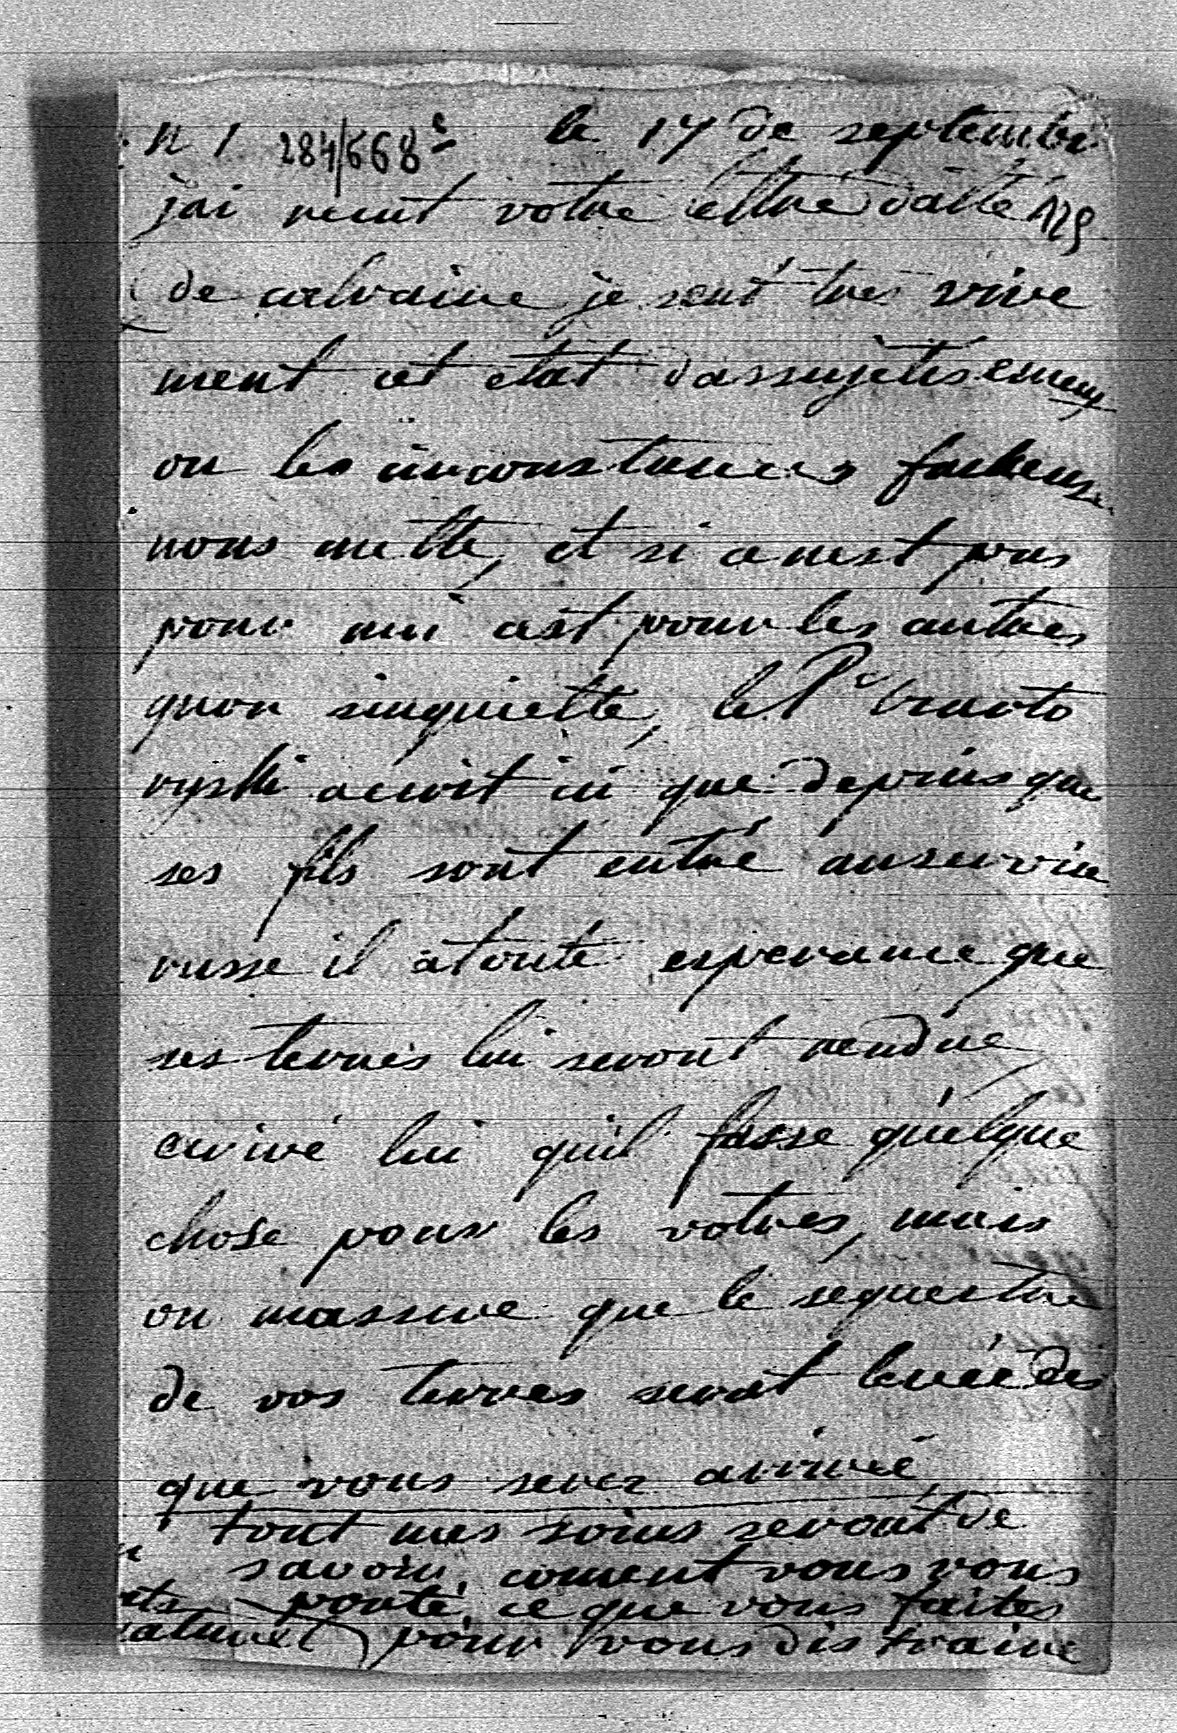 n 1 284/668 le 17 de septembr
jai recut votre lettre datté 129
de calvaire je sent tres vive
ment cet etat dassujetisement
ou les circonstances facheuse
nous mette, et si ce nest pas
pour moi cest pour les autres
quon sinquiette, le Pce Czarto
ryski ecrivit ici que depuis que
ses fils sont entré au service
russe il a toute esperance que
ses terres lui seront rendue,
ecrivé lui quil fasse quelque
chose pour les votres, mais
on massure que le sequestre
de vos terres serat levée des
que vous serez arrivée,
tout mes soins seront de
savoir coment vous vous
porté, ce que vous faites
pour vous distraire